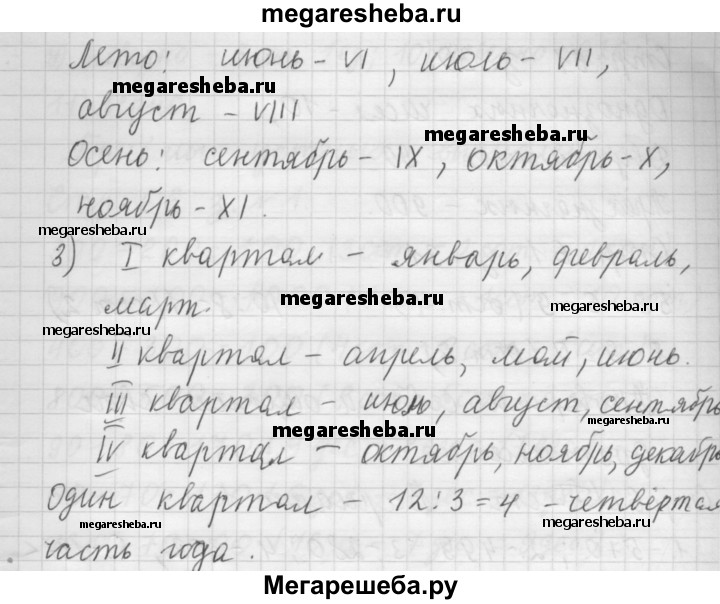 megaresheba.ru
Лето: июнь - VI, июль - VII,
megaresheba.ru
август - VIII
megaresheba.ru
Осень: сентябрь - IX, октябрь - X,
ноябрь - XI.
megaresheba.ru
3) I квартал - январь, февраль,
megaresheba.ru
март.
megaresheba.ru
II квартал - апрель, май, июнь.
III квартал - июль, август, сентябрь
megaresheba.ru
megaresheba.ru
IV квартал - октябрь, ноябрь, декабрь
Один квартал - 12:3=4 - четвёртая
megaresheba.ru
megaresheba.ru
часть года.
Мегарешеба.ру